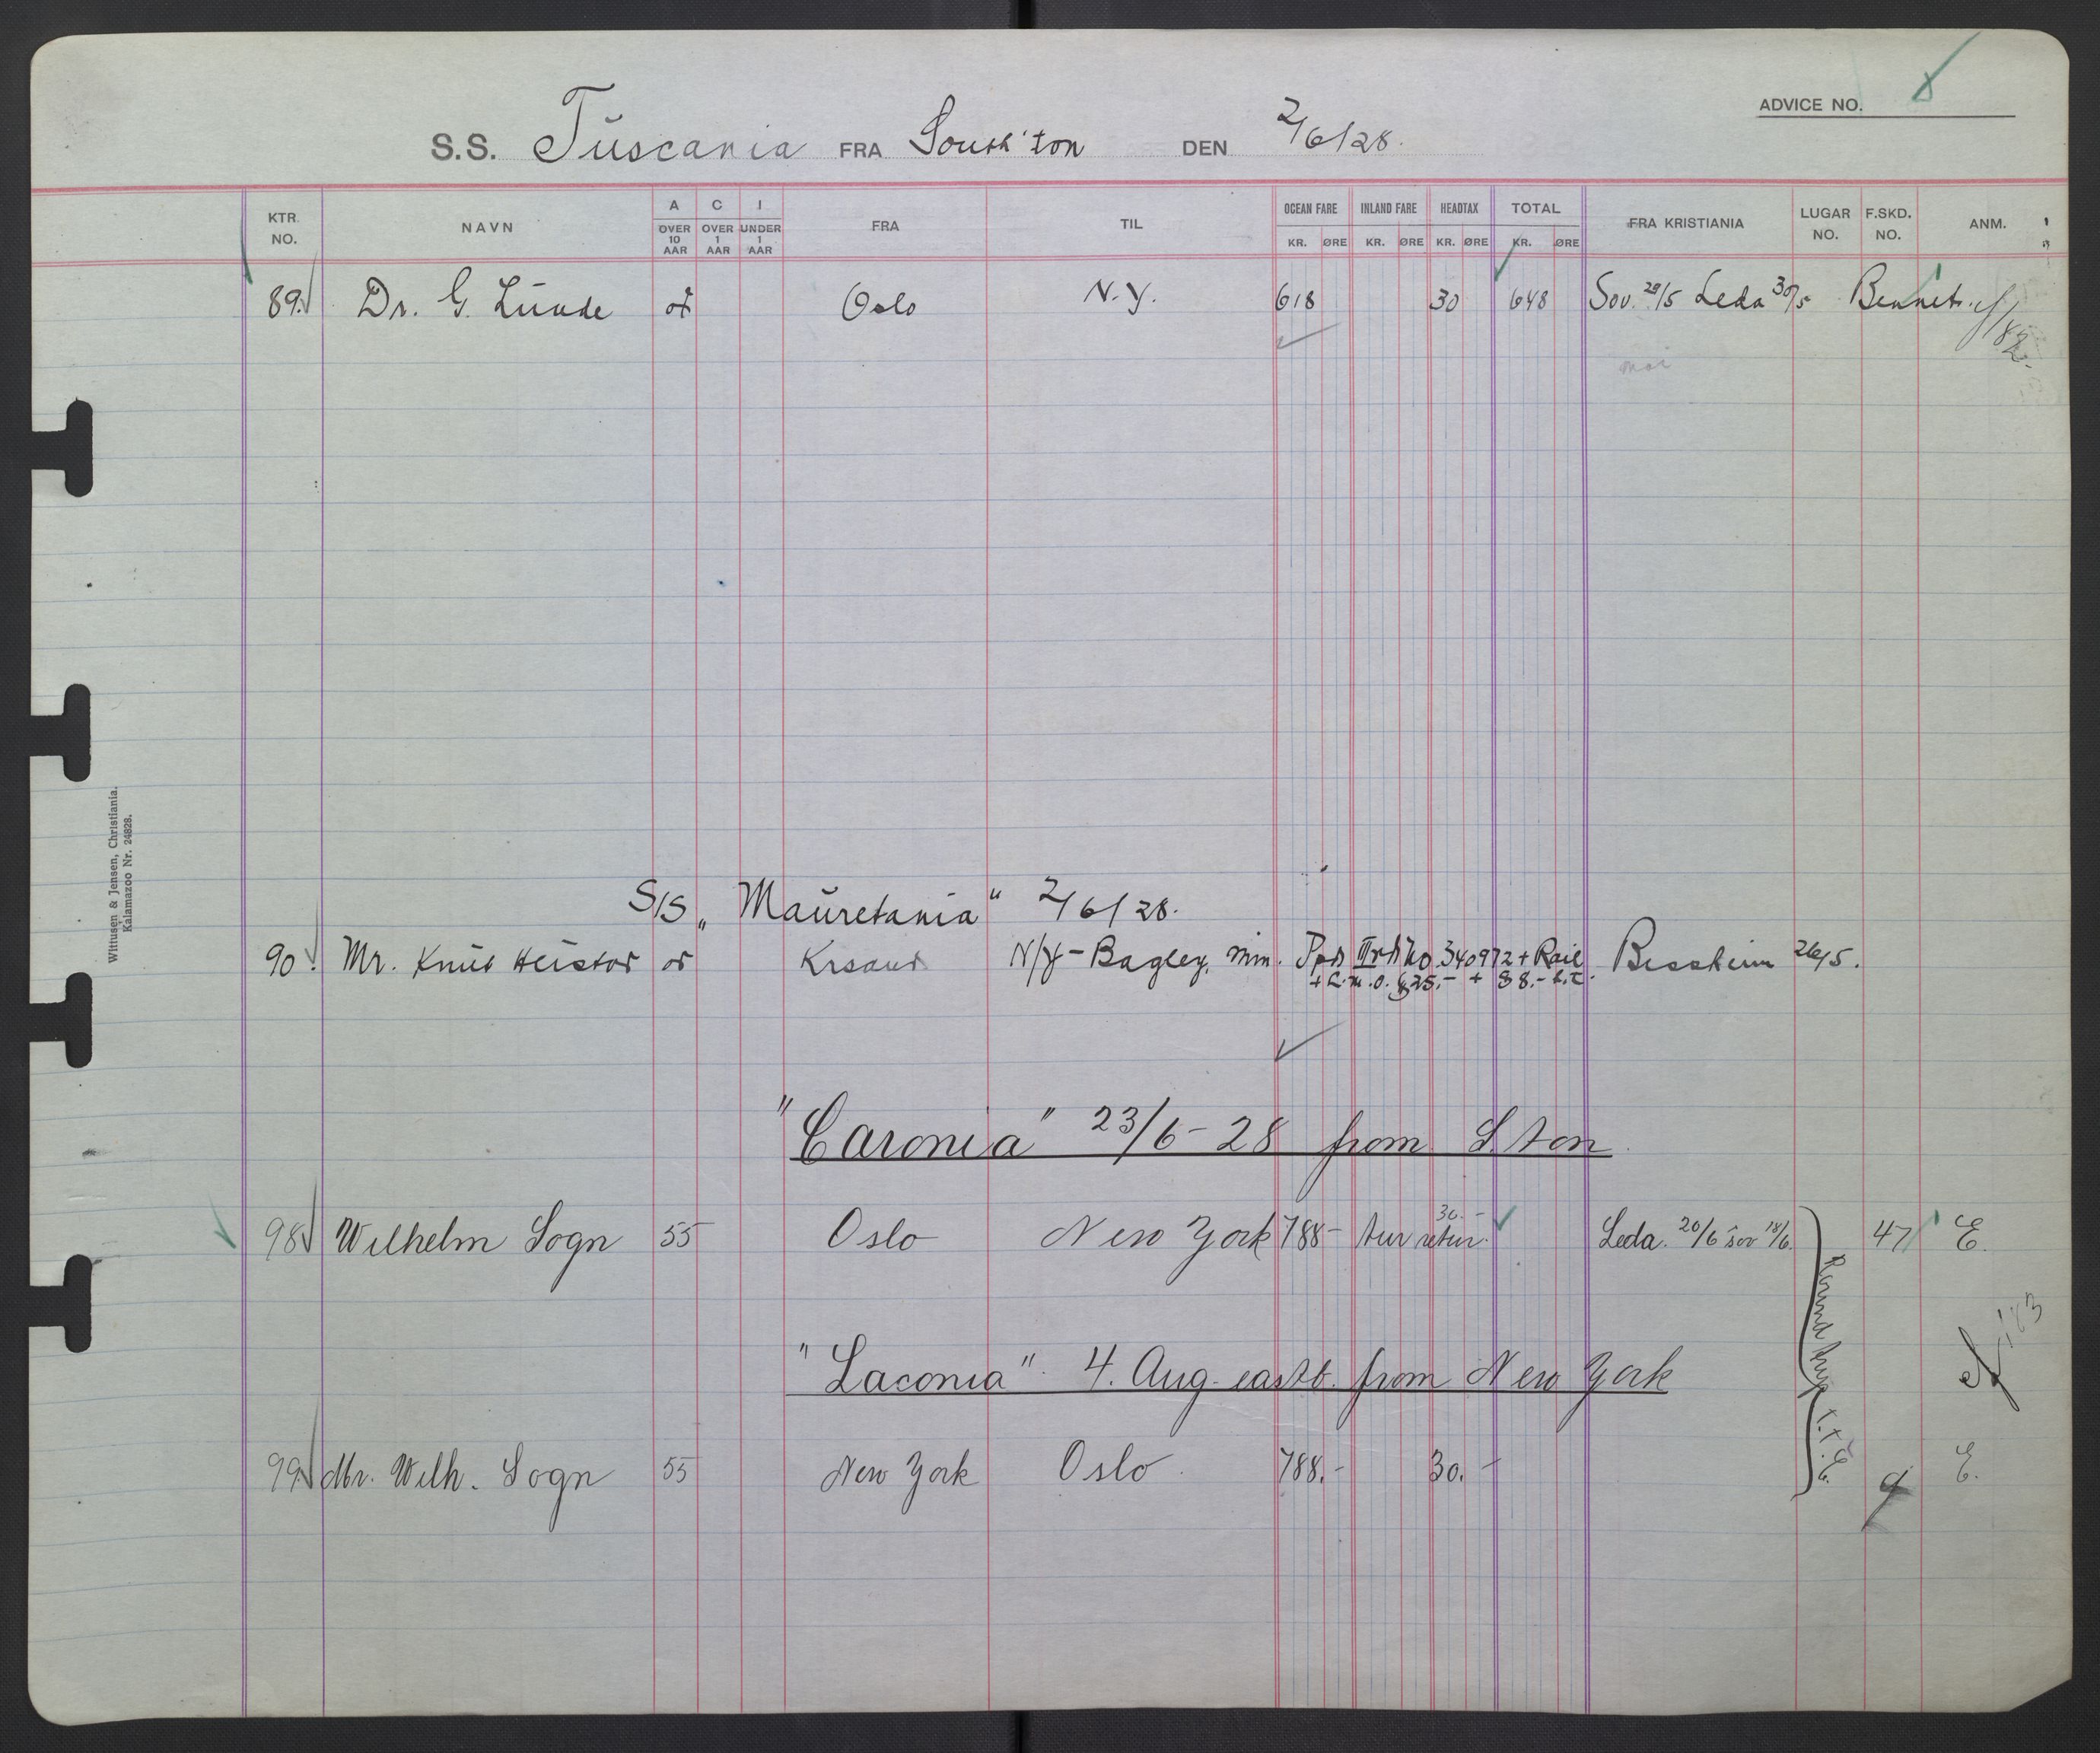 ADVICE NO.
S.S. Tuscania FRA South'ton DEN 2/6/28.
KTR. NO. NAVN A OVER 10 AAR C OVER 1 AAR I UNDER 1 AAR FRA TIL OCEAN FARE KR. ØRE INLAND FARE KR. ØRE HEADTAX KR. ØRE TOTAL KR. ØRE FRA KRISTIANIA LUGAR NO. F.SKD. NO. ANM.
89. Dr. G. Lunde Oslo N.Y. 618 30 648 Sov. 29/5 Leda 30/5 Bennets.
S/S „Mauretania" 2/6/28.
90. Mr. Knut Krsand N/Y - Bagley, Min. Ppd III No. 340972 + Rail 26/5.
+ L.m.o. $25.- + $8.-
"Caronia" 23/6-28 from S.ton
30.-
98 Wilhelm Sogn 55 Oslo New York 788- tur retur. Leda. 20/6 sov 18/6. 47 E.
Round trip t.t.E.
"Laconia" 4. Aug. eastb. from New York
99 Mr. Wilh. Sogn 55 New York Oslo 788.- 30.- E.
Wittusen & Jensen, Christiania.
Kalamazoo Nr. 24828.